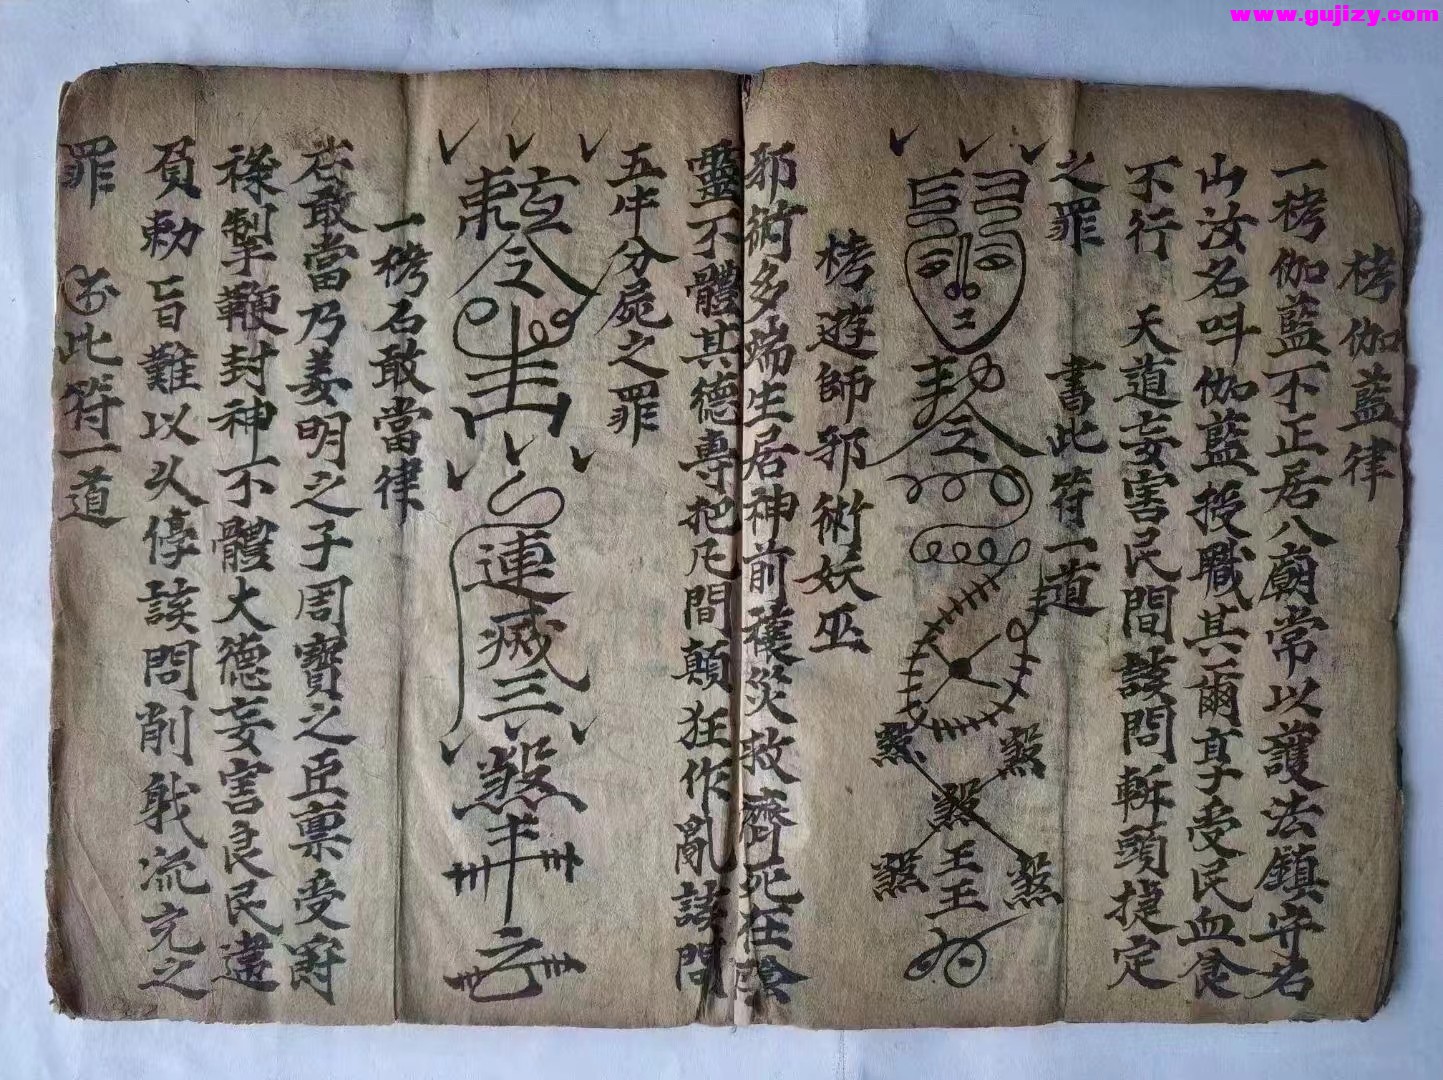 www.gujizy.com
栲伽藍律
一栲伽藍不正居八廟常以護法鎮守名
山汝名呌伽藍授職其爾享受民血食
不行 天道妄害民間該問斬頭㨗定
之罪 書此符一道
令
煞 煞
煞
煞 王 煞
王
栲遊師邪術妖巫
邪術多端生居神前禳災救濟死在陰
靈不體其德專把凡間顛狂作亂該問
五牛分屍之罪
令
連滅三煞
一栲石敢當律
石敢當乃姜明之子周寶之臣禀受爵
祿掣鞭封神不體大德妄害良民違
負勅旨難以久停該問削戢流充之
罪 此符一道